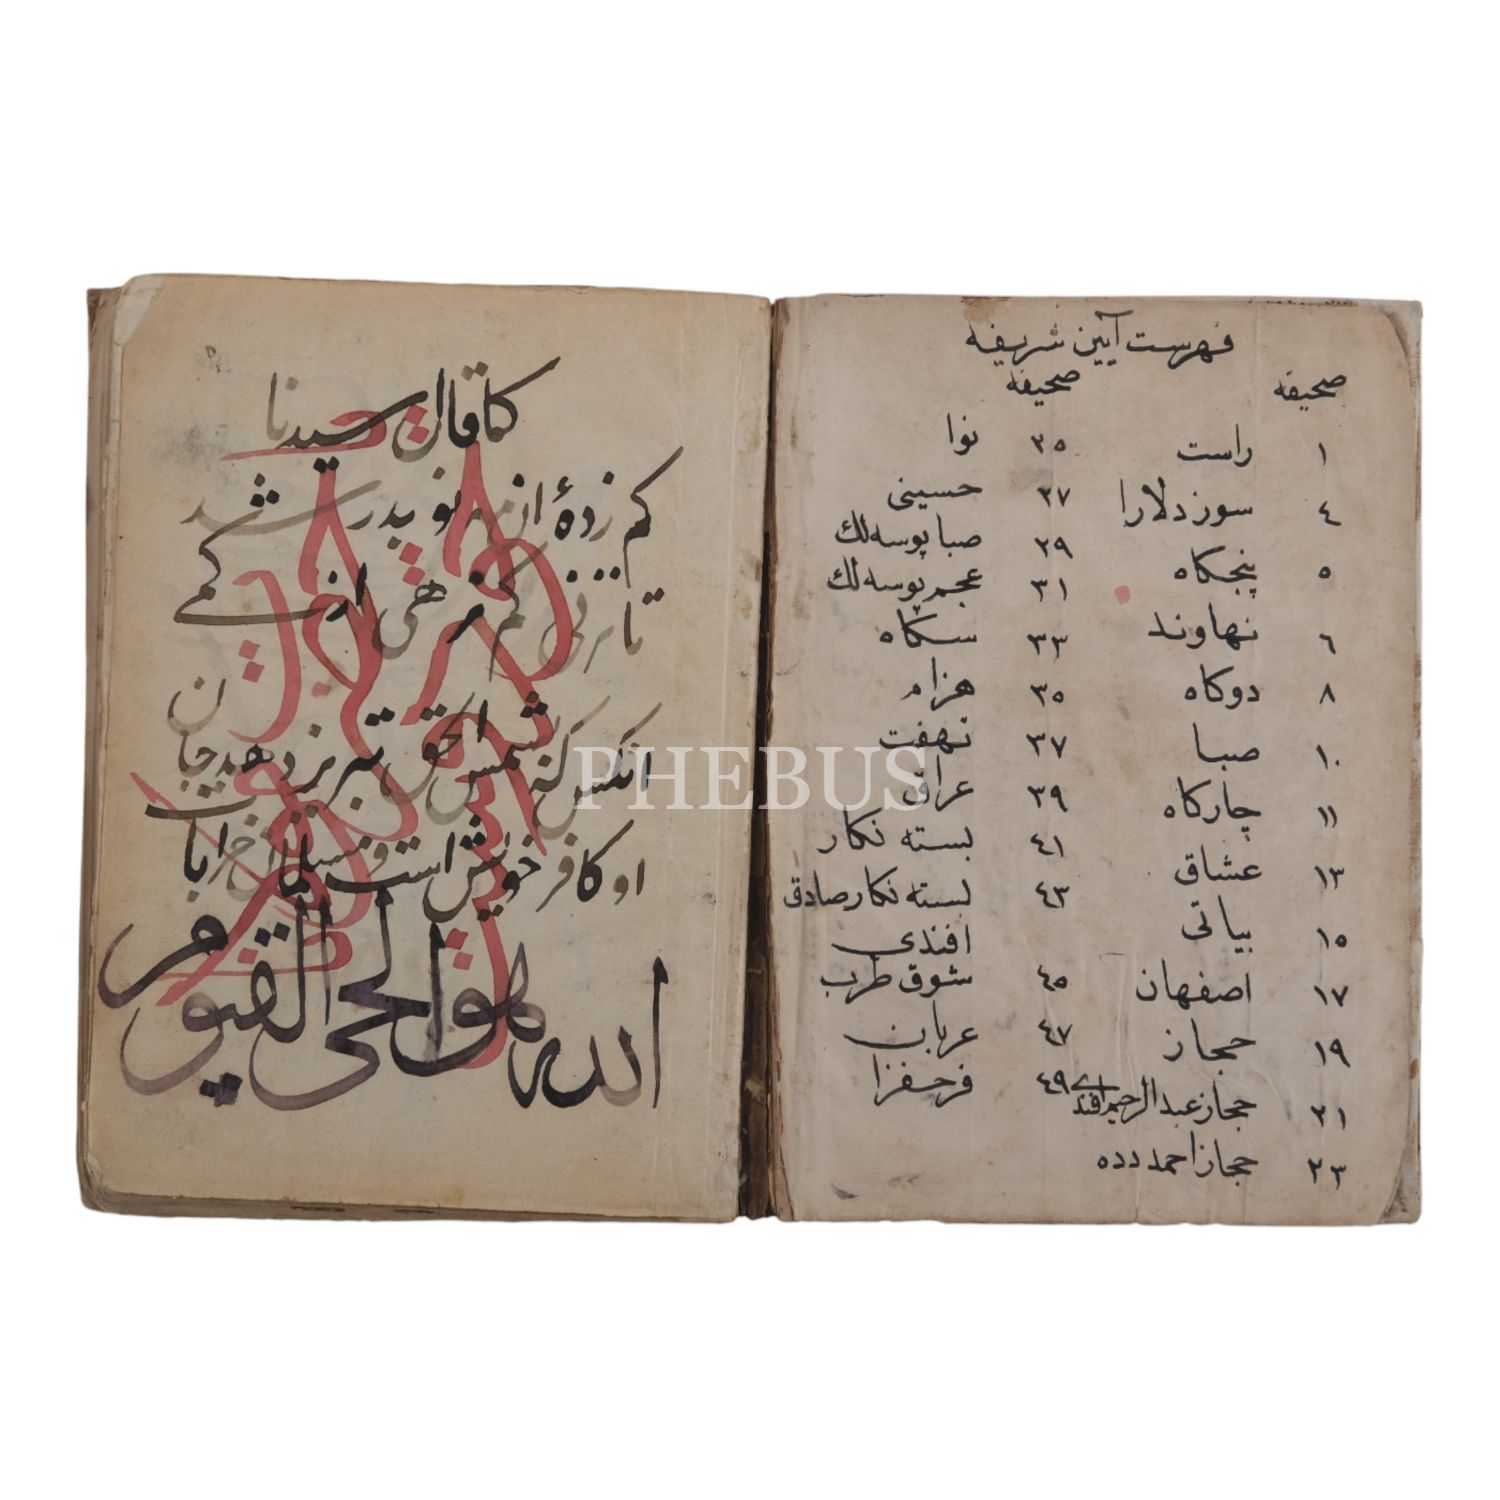 فهرست آيين شريفه
صحيفه
١ راست
٤ سوزدلارا
٥ پنجكاه
٦ نهاوند
٨ دوكاه
١٠ صبا
١١ چاركاه
١٣ عشاق
١٥ بياتى
١٧ اصفهان
١٩ حجاز
٢١ حجاز عبدالرحيم افندى
٢٣ حجاز احمد دده
صحيفه
٢٥ نوا
٢٧ حسينى
٢٩ صبا بوسه لك
٣١ عجم بوسه لك
٣٣ سكاه
٣٥ هزام
٣٧ نهفت
٣٩ عراق
٤١ بسته نكار
٤٣ بسته نكار صادق
افندى
٤٥ شوق طرب
٤٧ عربان
٤٩ فرحفزا
كما قال سيدنا
كم زدهٔ از مه نو بدر شد
تا نزنى كم نرهى از كمى
انكس كه شمس الحق تبريز دهد جان
او كافر خويش است و مسلمان خرابات
الله هو الحى القيوم
PHEBUS